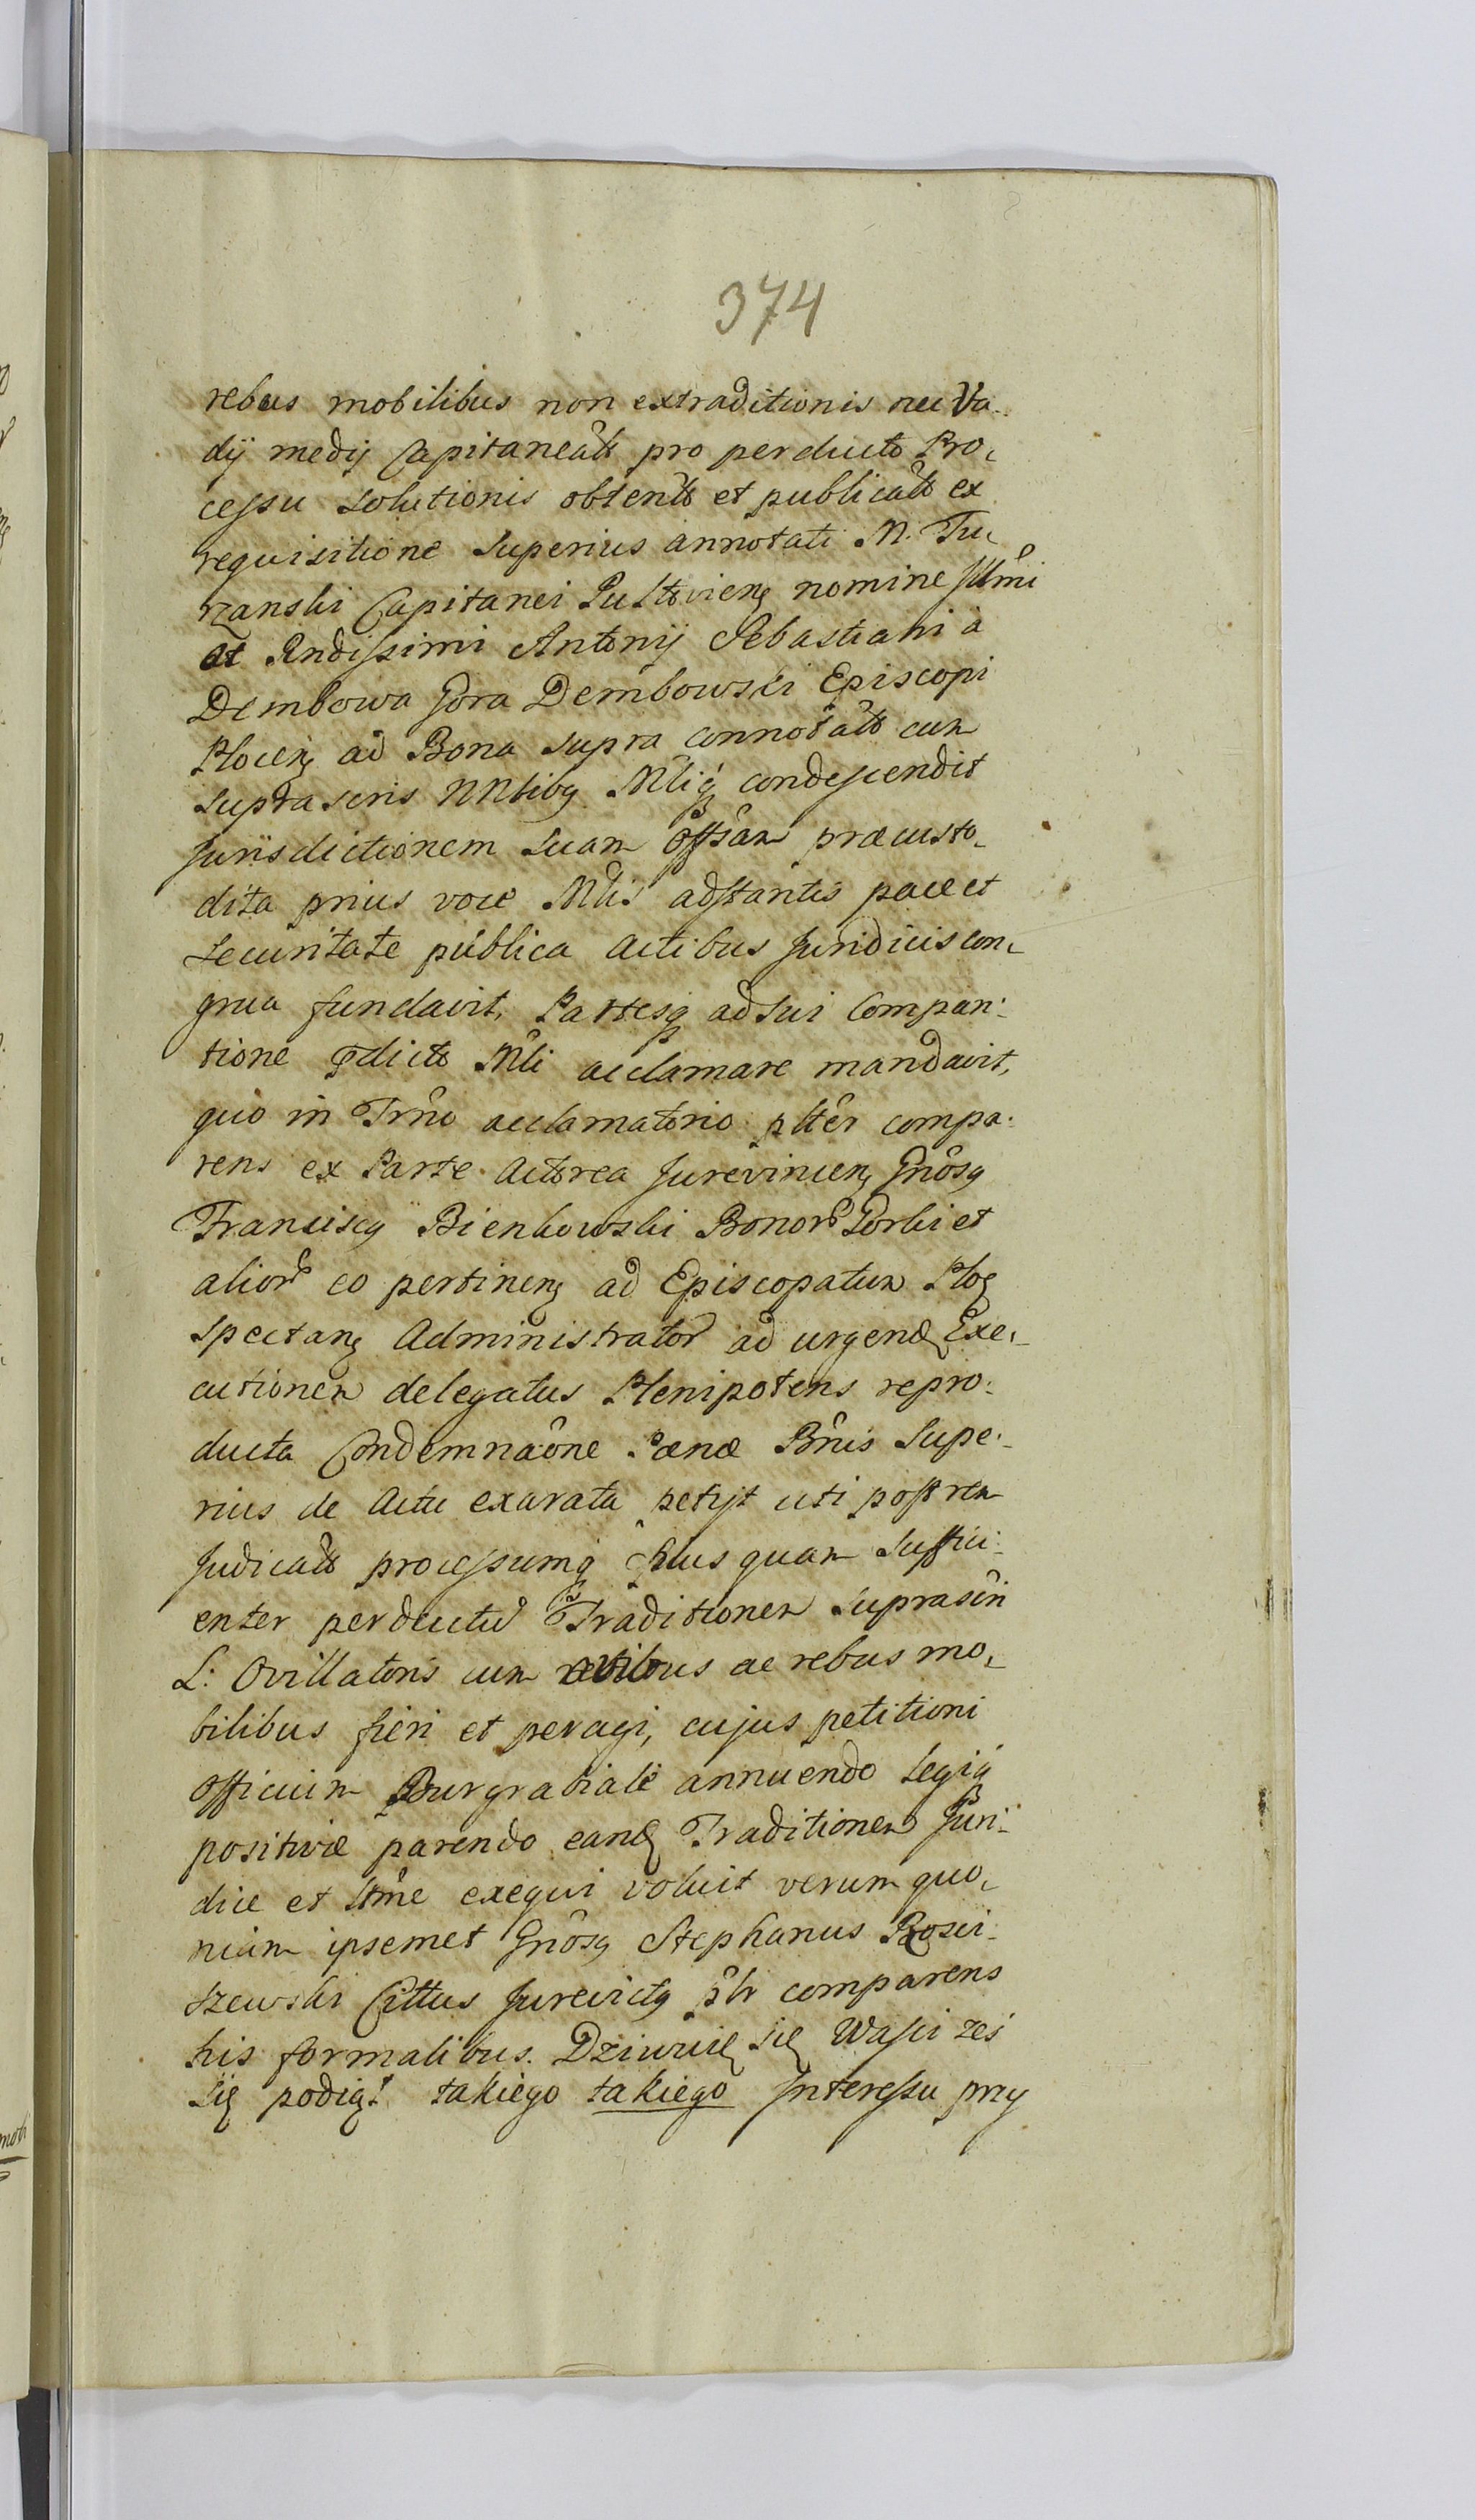 374
rebus mobilibus non extraditionis nec Va-
dij medij Capitaneats pro perducto Pro-
cessu solutionis obtents et publicats ex
requisitione superius annotati M. Tu-
rzanski Capitanei Pultovien nomine Illmi
et Rndissimi Antonij Sebastiani à
Dembowa Gora Dembowski Episcopi
Plocen ad Bona supra connotats cum
suprascris NNbibq Mliq condescendit
Jurisdictionem suam Offsam præcusto-
dita prius voce Mlis adstantis pace et
securitate publica actibus Juridicis con-
grua fundavit, Partesq ad sui Compari-
tione pdicts Mli acclamare mandavit,
quo in Trno acclamatorio plter compa-
rens ex Parte Actorea Jurevincen Gnosq
Franciscq Bienkowski Bonor Gorki et
alior eo pertinen ad Episcopatum Plo
spectan Administrator ad urgend Exe-
cutionem delegatus Plenipotens repro-
ducta Condemnaone Pænæ Bnis supe-
rius de Actu exarata petijt uti post rem
Judicats processumq plus quam suffici-
enter perductu Traditionem suprascri
L: Ovillatoris cum ovibus ac rebus mo-
bilibus fieri et peragi, cujus petitioni
officium Burgrabiale annuendo Legiq
positivæ parendo eand Traditionem Juri-
dice et ltme exequi voluit verum quo-
niam ipsemet Gnosq Stephanus Rosci-
szewski Cittus Jurevictq pltr comparens
his formalibus. Dziwuię się Wasci żeś
się podiął takiego takiego Interessu przy